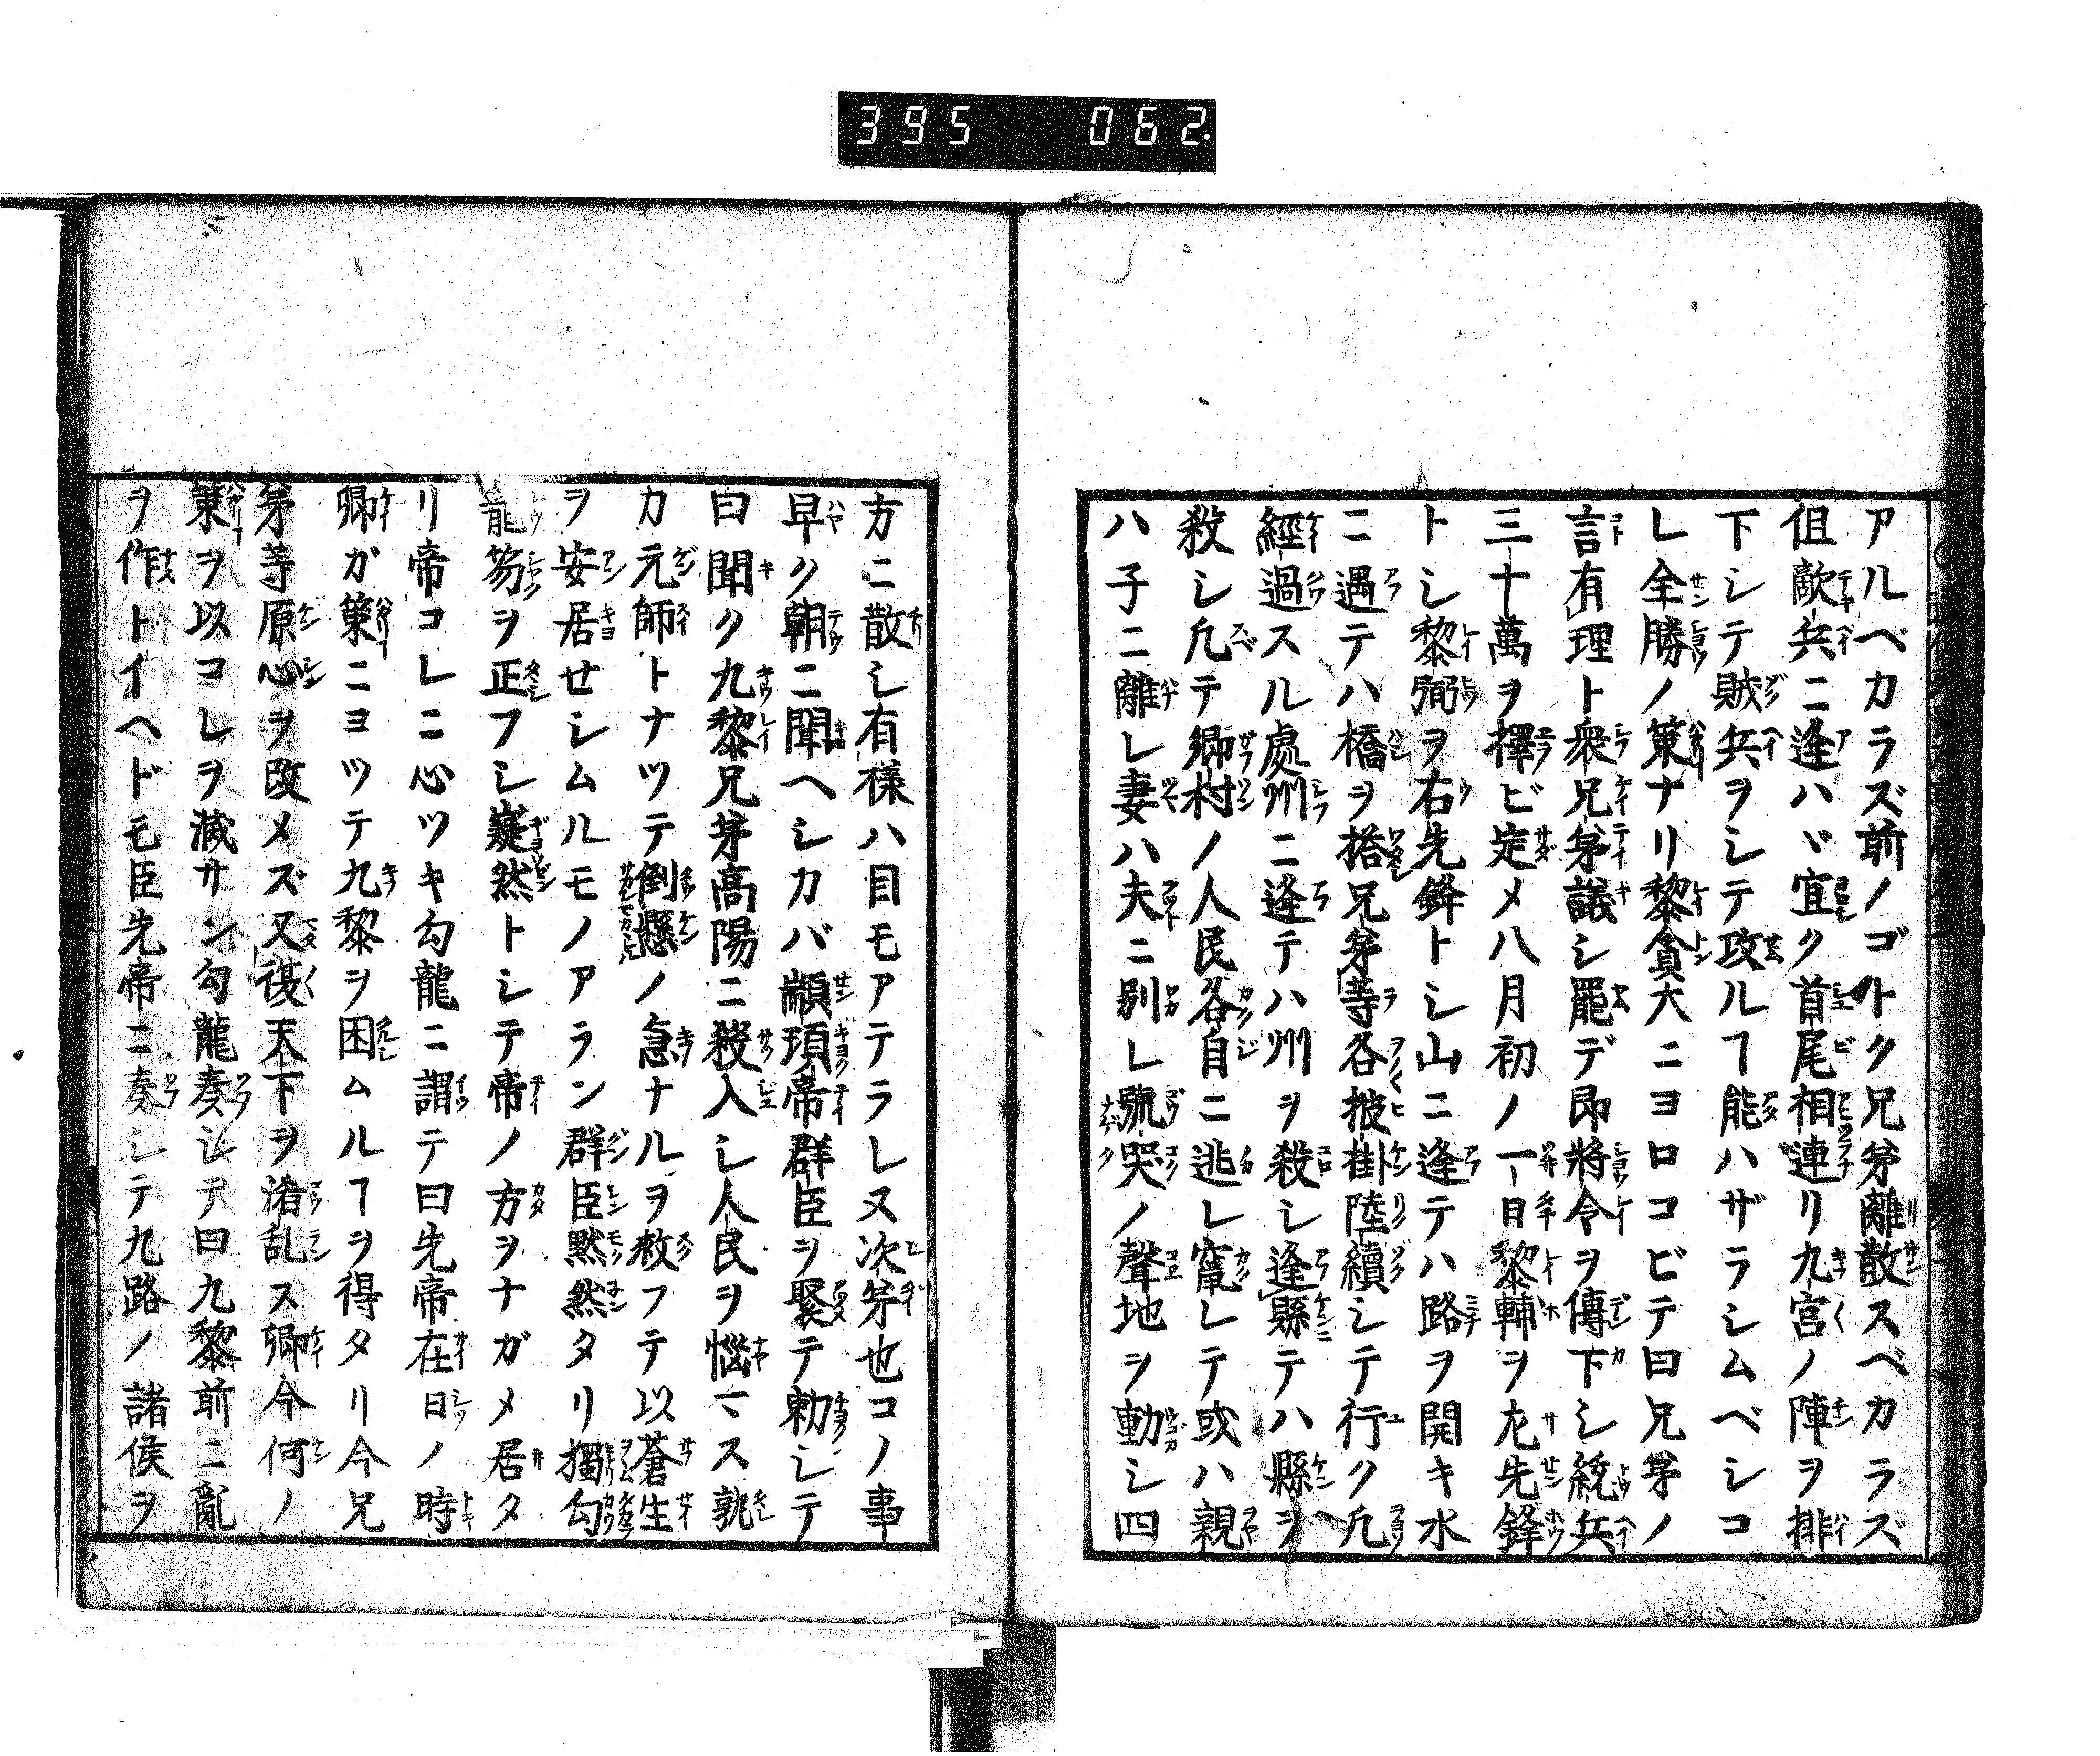 395 062
アルベカラズ前ノゴトク兄弟離散スベカラズ
但敵兵ニ逢ハヾ宜ク首尾相連リ九宮ノ陣ヲ排
下シテ賊兵ヲシテ攻ルヿ能ハザラシムベシコ
レ全勝ノ策ナリ黎貪大ニヨロコビテ曰兄弟ノ
言有理ト衆兄弟議シ罷デ即將令ヲ傳下シ統兵
三十萬ヲ擇ビ定メ八月初ノ一日黎輔ヲ左先鋒
トシ黎 ヲ右先鋒トシ山ニ逢テハ路ヲ開キ水
ニ遇テハ橋ヲ搭兄弟等各披掛陸續シテ行ク凢
經過スル處州ニ逢テハ州ヲ殺シ逢縣テハ縣ヲ
殺シ凢テ郷村ノ人民各自ニ逃レ竄レテ或ハ親
ハ子ニ離レ妻ハ夫ニ別レ號哭ノ聲地ヲ動シ四
方ニ散シ有様ハ目モアテラレヌ次第也コノ事
早ク朝ニ聞ヘシカバ顓頊帝群臣ヲ聚テ勅シテ
曰聞ク九黎兄弟高陽ニ殺入シ人民ヲ惱マス孰
カ元師トナツテ倒懸ノ急ナルヲ救フテ以蒼生
ヲ安居セシムルモノアラン群臣黙然タリ獨勾
龍笏ヲ正フシ嶷然トシテ帝ノ方ヲナガメ居タ
リ帝コレニ心ツキ勾龍ニ謂テ曰先帝在日ノ時
卿ガ策ニヨツテ九黎ヲ困ムルヿヲ得タリ今兄
弟等原心ヲ改メズ又復天下ヲ淆乱ス卿今何ノ
策ヲ以コレヲ滅サン勾龍奏シテ曰九黎前ニ亂
ヲ作トイヘドモ臣先帝ニ奏シテ九路ノ諸侯ヲ